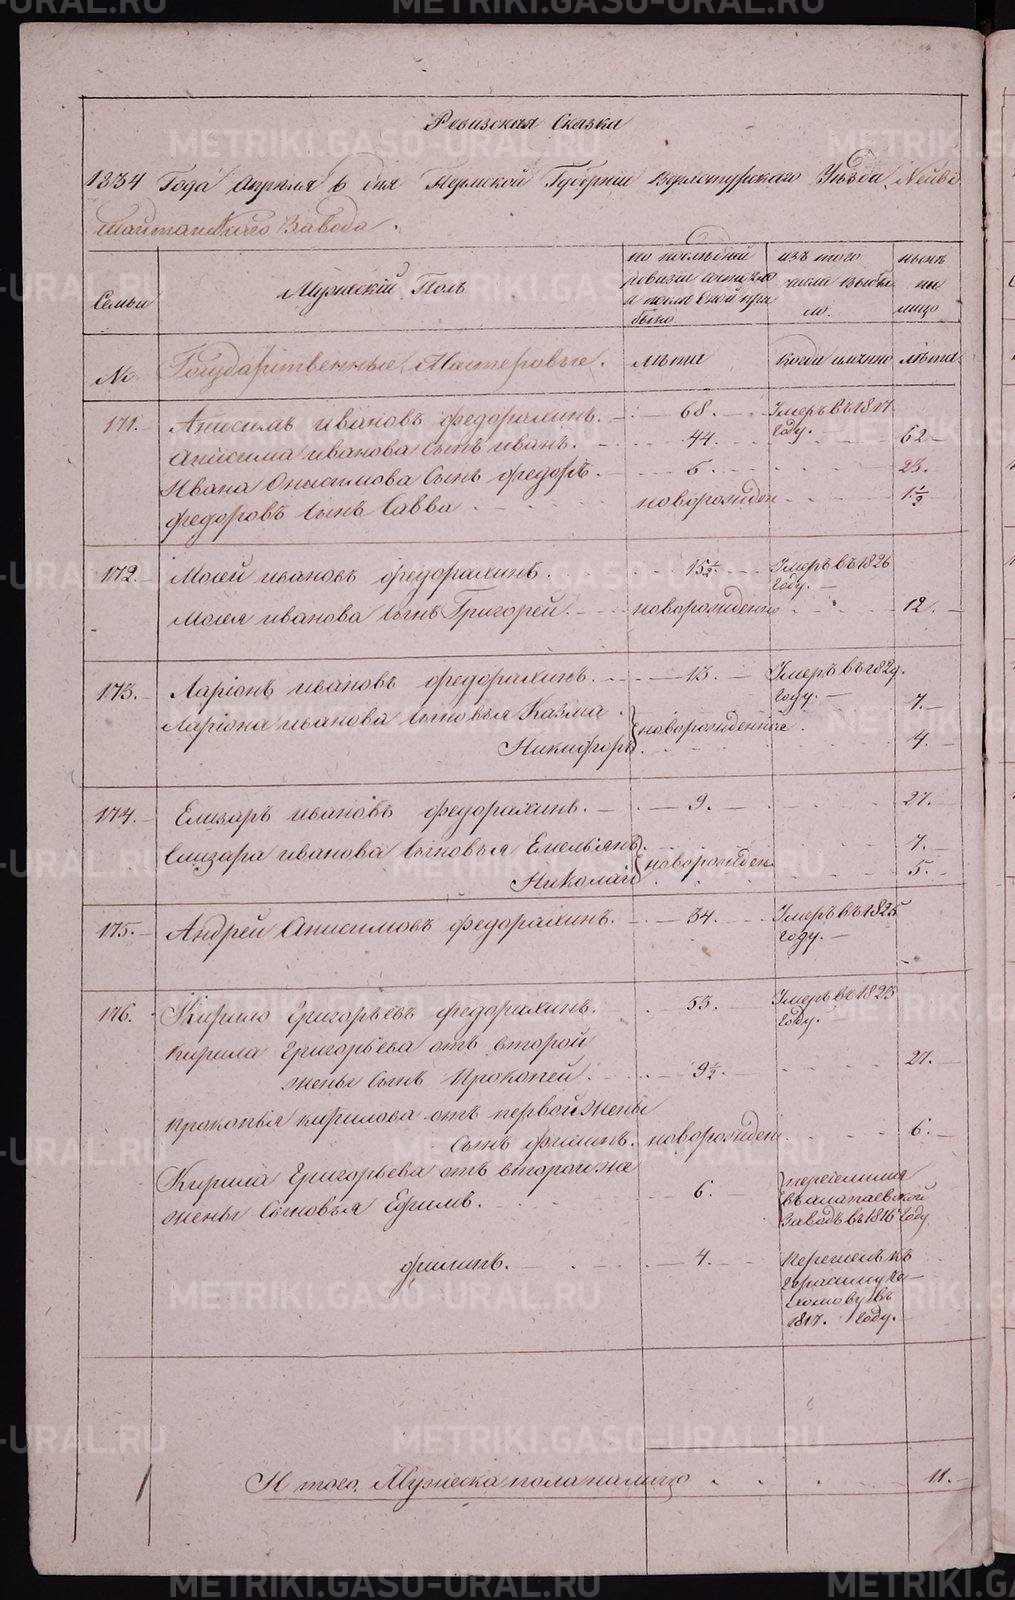 Ревизская Сказка
1834 Года Апреля 6 дня Пермской Губернии Верхотурского Уезда, Нейво
Шайтанского Завода.
Семьи
Мужеский Полъ
по последней ревизии состояло и после оной прибыло
изъ того числа выбыло.
ныне на лицо
№
Государственные Мастеровые.
лета
когда имянно
лета
171. Анисимъ ивановъ федорахинъ. 68. Умеръ въ 1817 году.
Анисима иванова Сынъ иванъ. 44. 62
Ивана Онисимова Сынъ федоръ. 5. 23.
федоровъ Сынъ Савва новорожден 1 1/2
172. Мосей ивановъ федорахинъ. 15 1/2. Умеръ въ 1826 году.
Мосея иванова сынъ Григорей. новорожденн 12.
173. Ларионъ ивановъ федорахинъ. 13. Умеръ въ 1829. году.
Лариона иванова сыновья Казма новорожденные 7.
Никифоръ 4.
174. Елизаръ ивановъ федорахинъ. 9. 27.
Елизара иванова сыновья Емельянъ новорожден 7.
Николай 5.
175. Андрей Анисимовъ федорахинъ. 34. Умеръ въ 1825 году.
176. Кирило Григорьевъ федорахинъ. 53. Умеръ въ 1823 году.
Кирила Григорьева отъ второй
жены Сынъ Прокопей. 9 1/2. 27.
прокопья кирилова отъ первой жены
сынъ филипъ. новорожден 6.
Кирила Григорьева отъ второй же
жены Сыновья Ефимъ. 6. переселился въ алапаевской заводъ въ 1816 году
филипъ. 4. Перешелъ къ герасиму въ 1817. году.
Итого Мужеска пола налицо 11.
METRIKI.GASO-URAL.RU